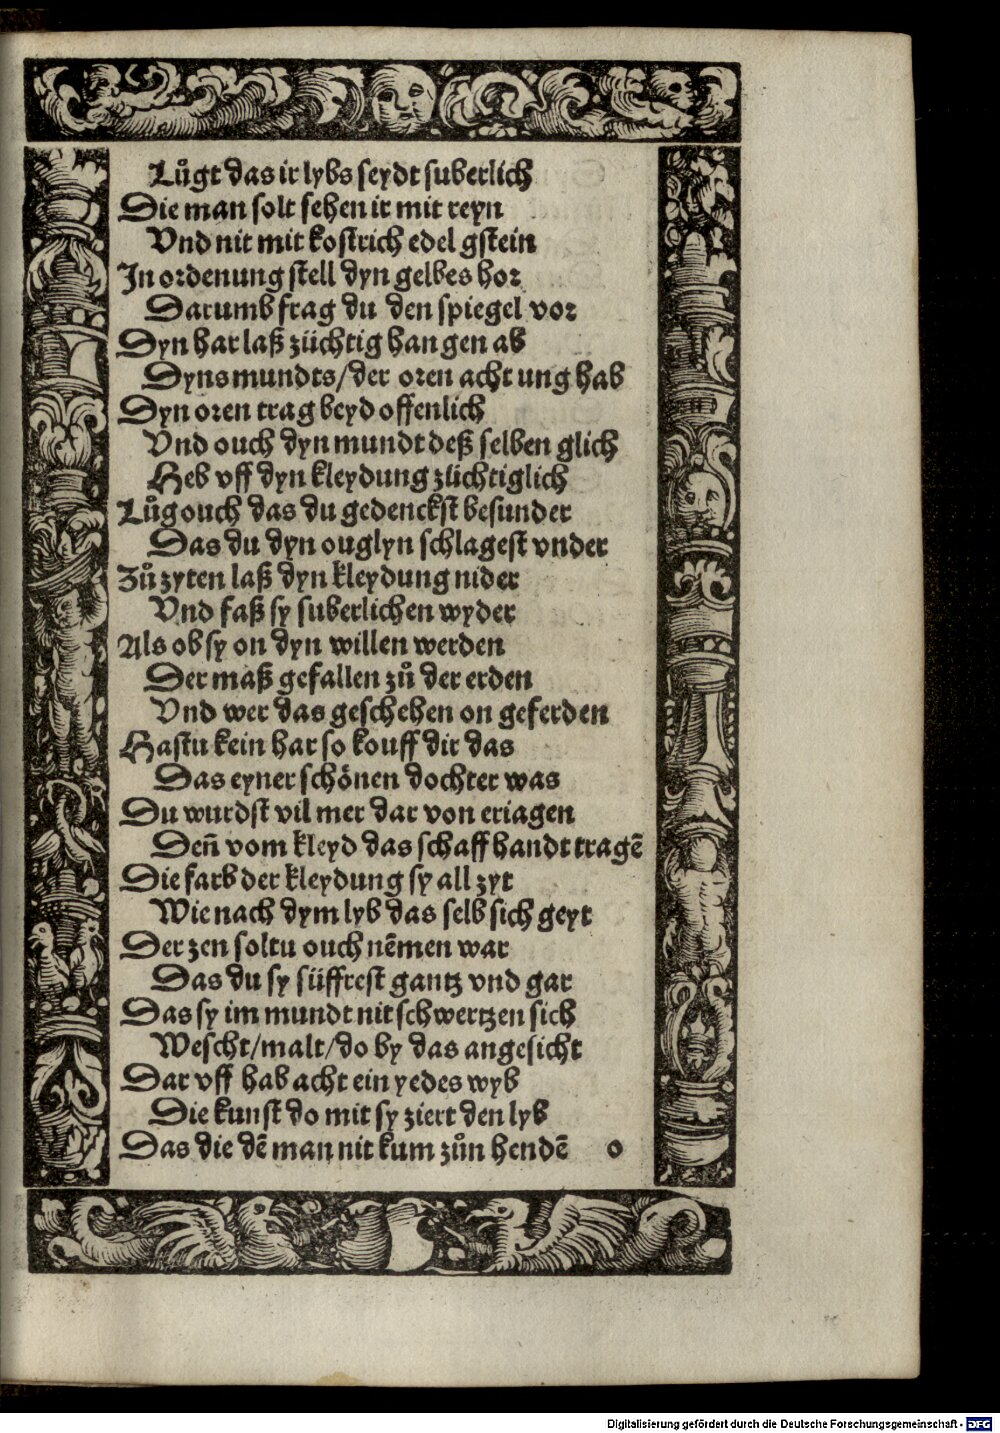 Lůgt das ir lybs seydt suberlich
Die man solt sehen ir mit reyn
Vnd nit mit kostrich edel gstein
In ordenung stell dyn gelbes hor
Darumb frag du den spiegel vor
Dyn har laß züchtig hangen ab
Dyns mundts/der oren acht ung hab
Dyn oren trag beyd offenlich
Vnd ouch dyn mundt deß selben glich
Heb vff dyn kleydung züchtiglich
Lůg ouch das du gedenckst besunder
Das du dyn ouglyn schlagest vnder
Zů zyten laß dyn kleydung nider
Vnd faß sy suberlichen wyder
Als ob sy on dyn willen werden
Der maß gefallen zů der erden
Vnd wer das geschehen on geferden
Hastu kein har so kouff dir das
Das eyner schönen dochter was
Du wurdst vil mer dar von eriagen
Deñ vom kleyd das schaff handt tragē
Die farb der kleydung sy all zyt
Wie nach dym lyb das selb sich geyt
Der zen soltu ouch nēmen war
Das du sy süffrest gantz vnd gar
Das sy im mundt nit schwertzen sich
Wescht/malt/do by das angesicht
Dar vff hab acht ein yedes wyb
Die kunst do mit sy ziert den lyb
Das die dē man nit kum zůn hendē o
Digitalisierung gefördert durch die Deutsche Forschungsgemeinschaft - DFG